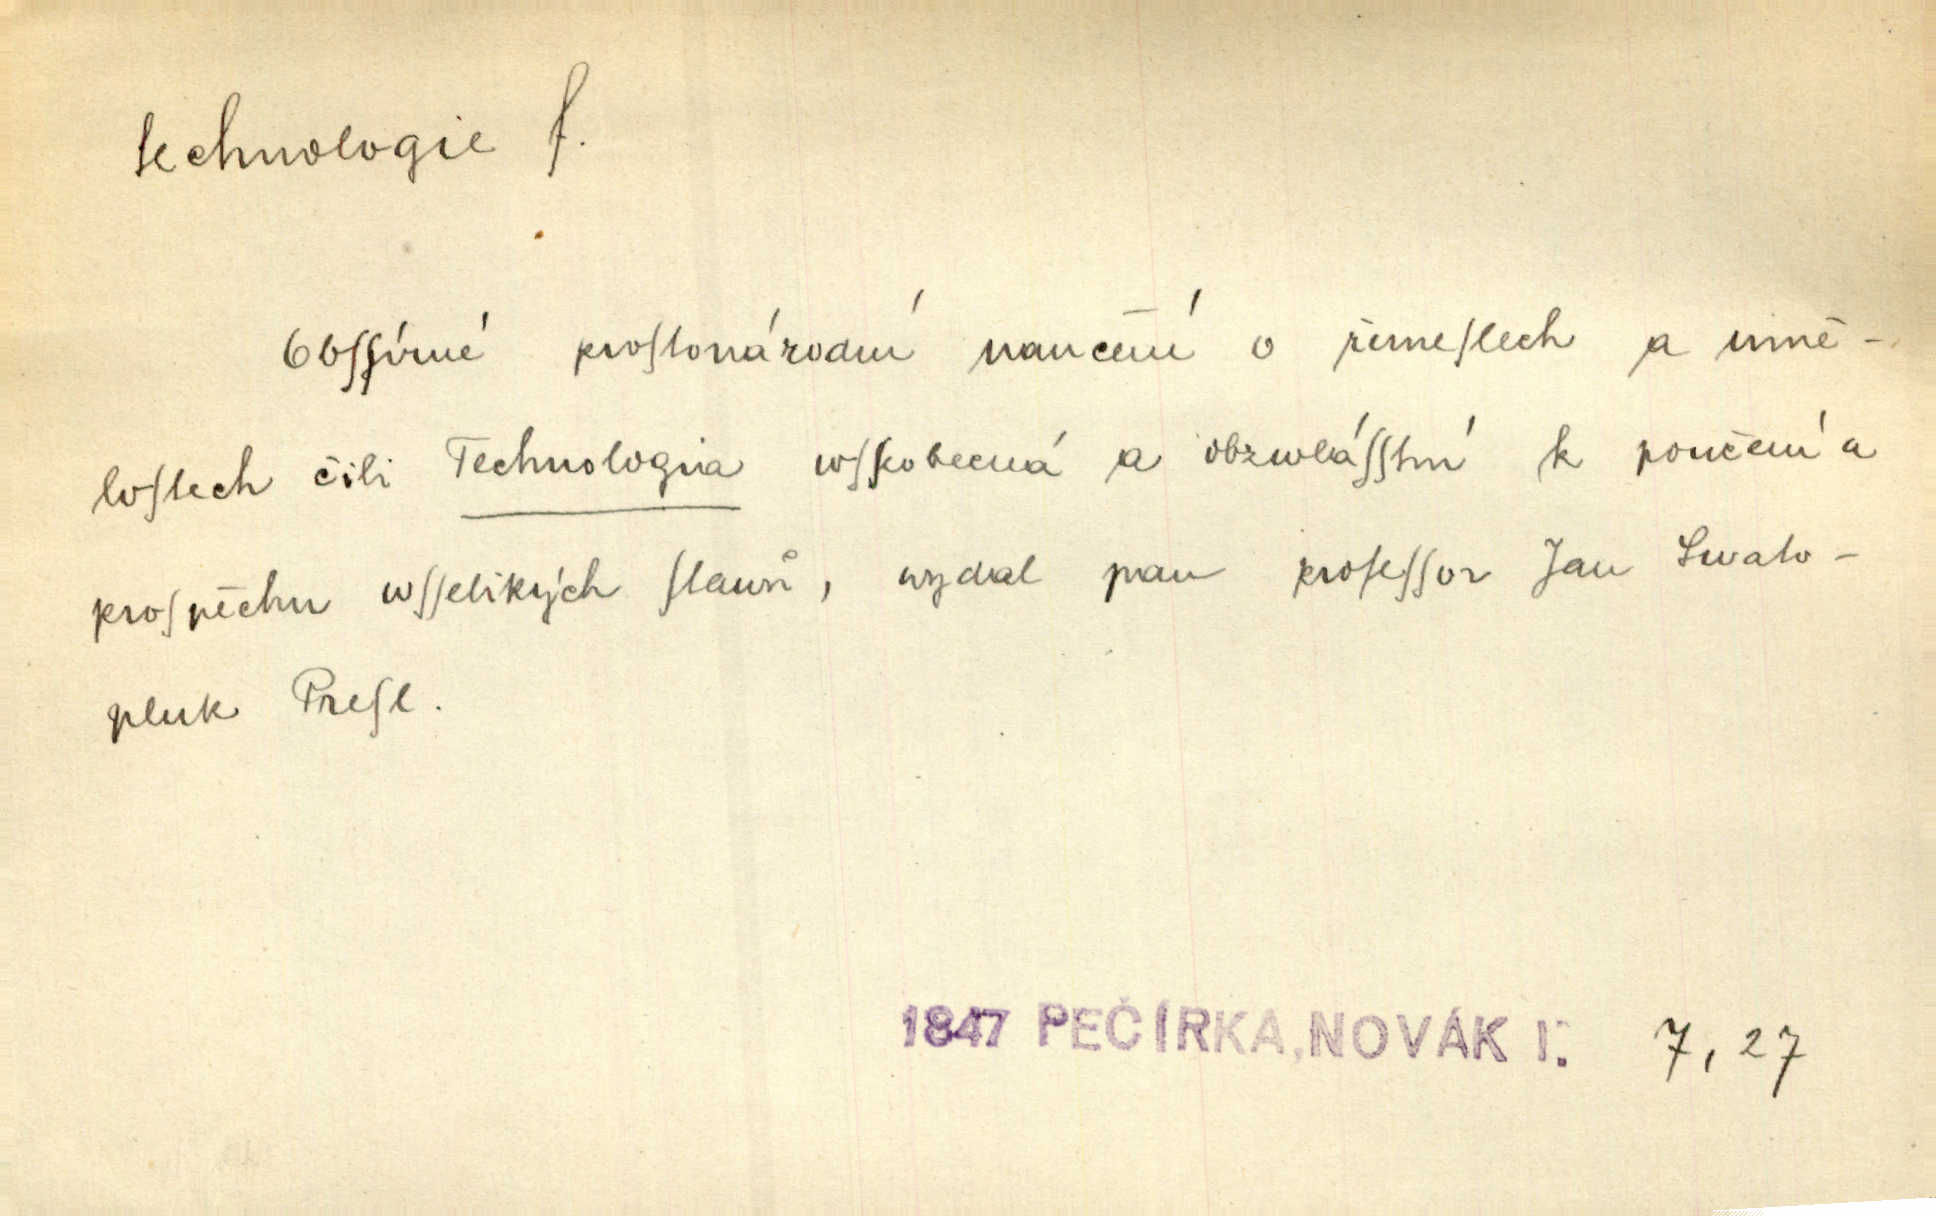 technologie f.
Obſſírné proſtonárodní naučení o řemeſlech a umě-
loſtech čili Technologia wſſeobecná a obzwláſſtní k poučení a
proſpěchu wſſelikých ſtawů, wydal pan profeſſor Jan Swato-
pluk Preſl.
1847 PEČÍRKA, NOVÁK I. 7, 27